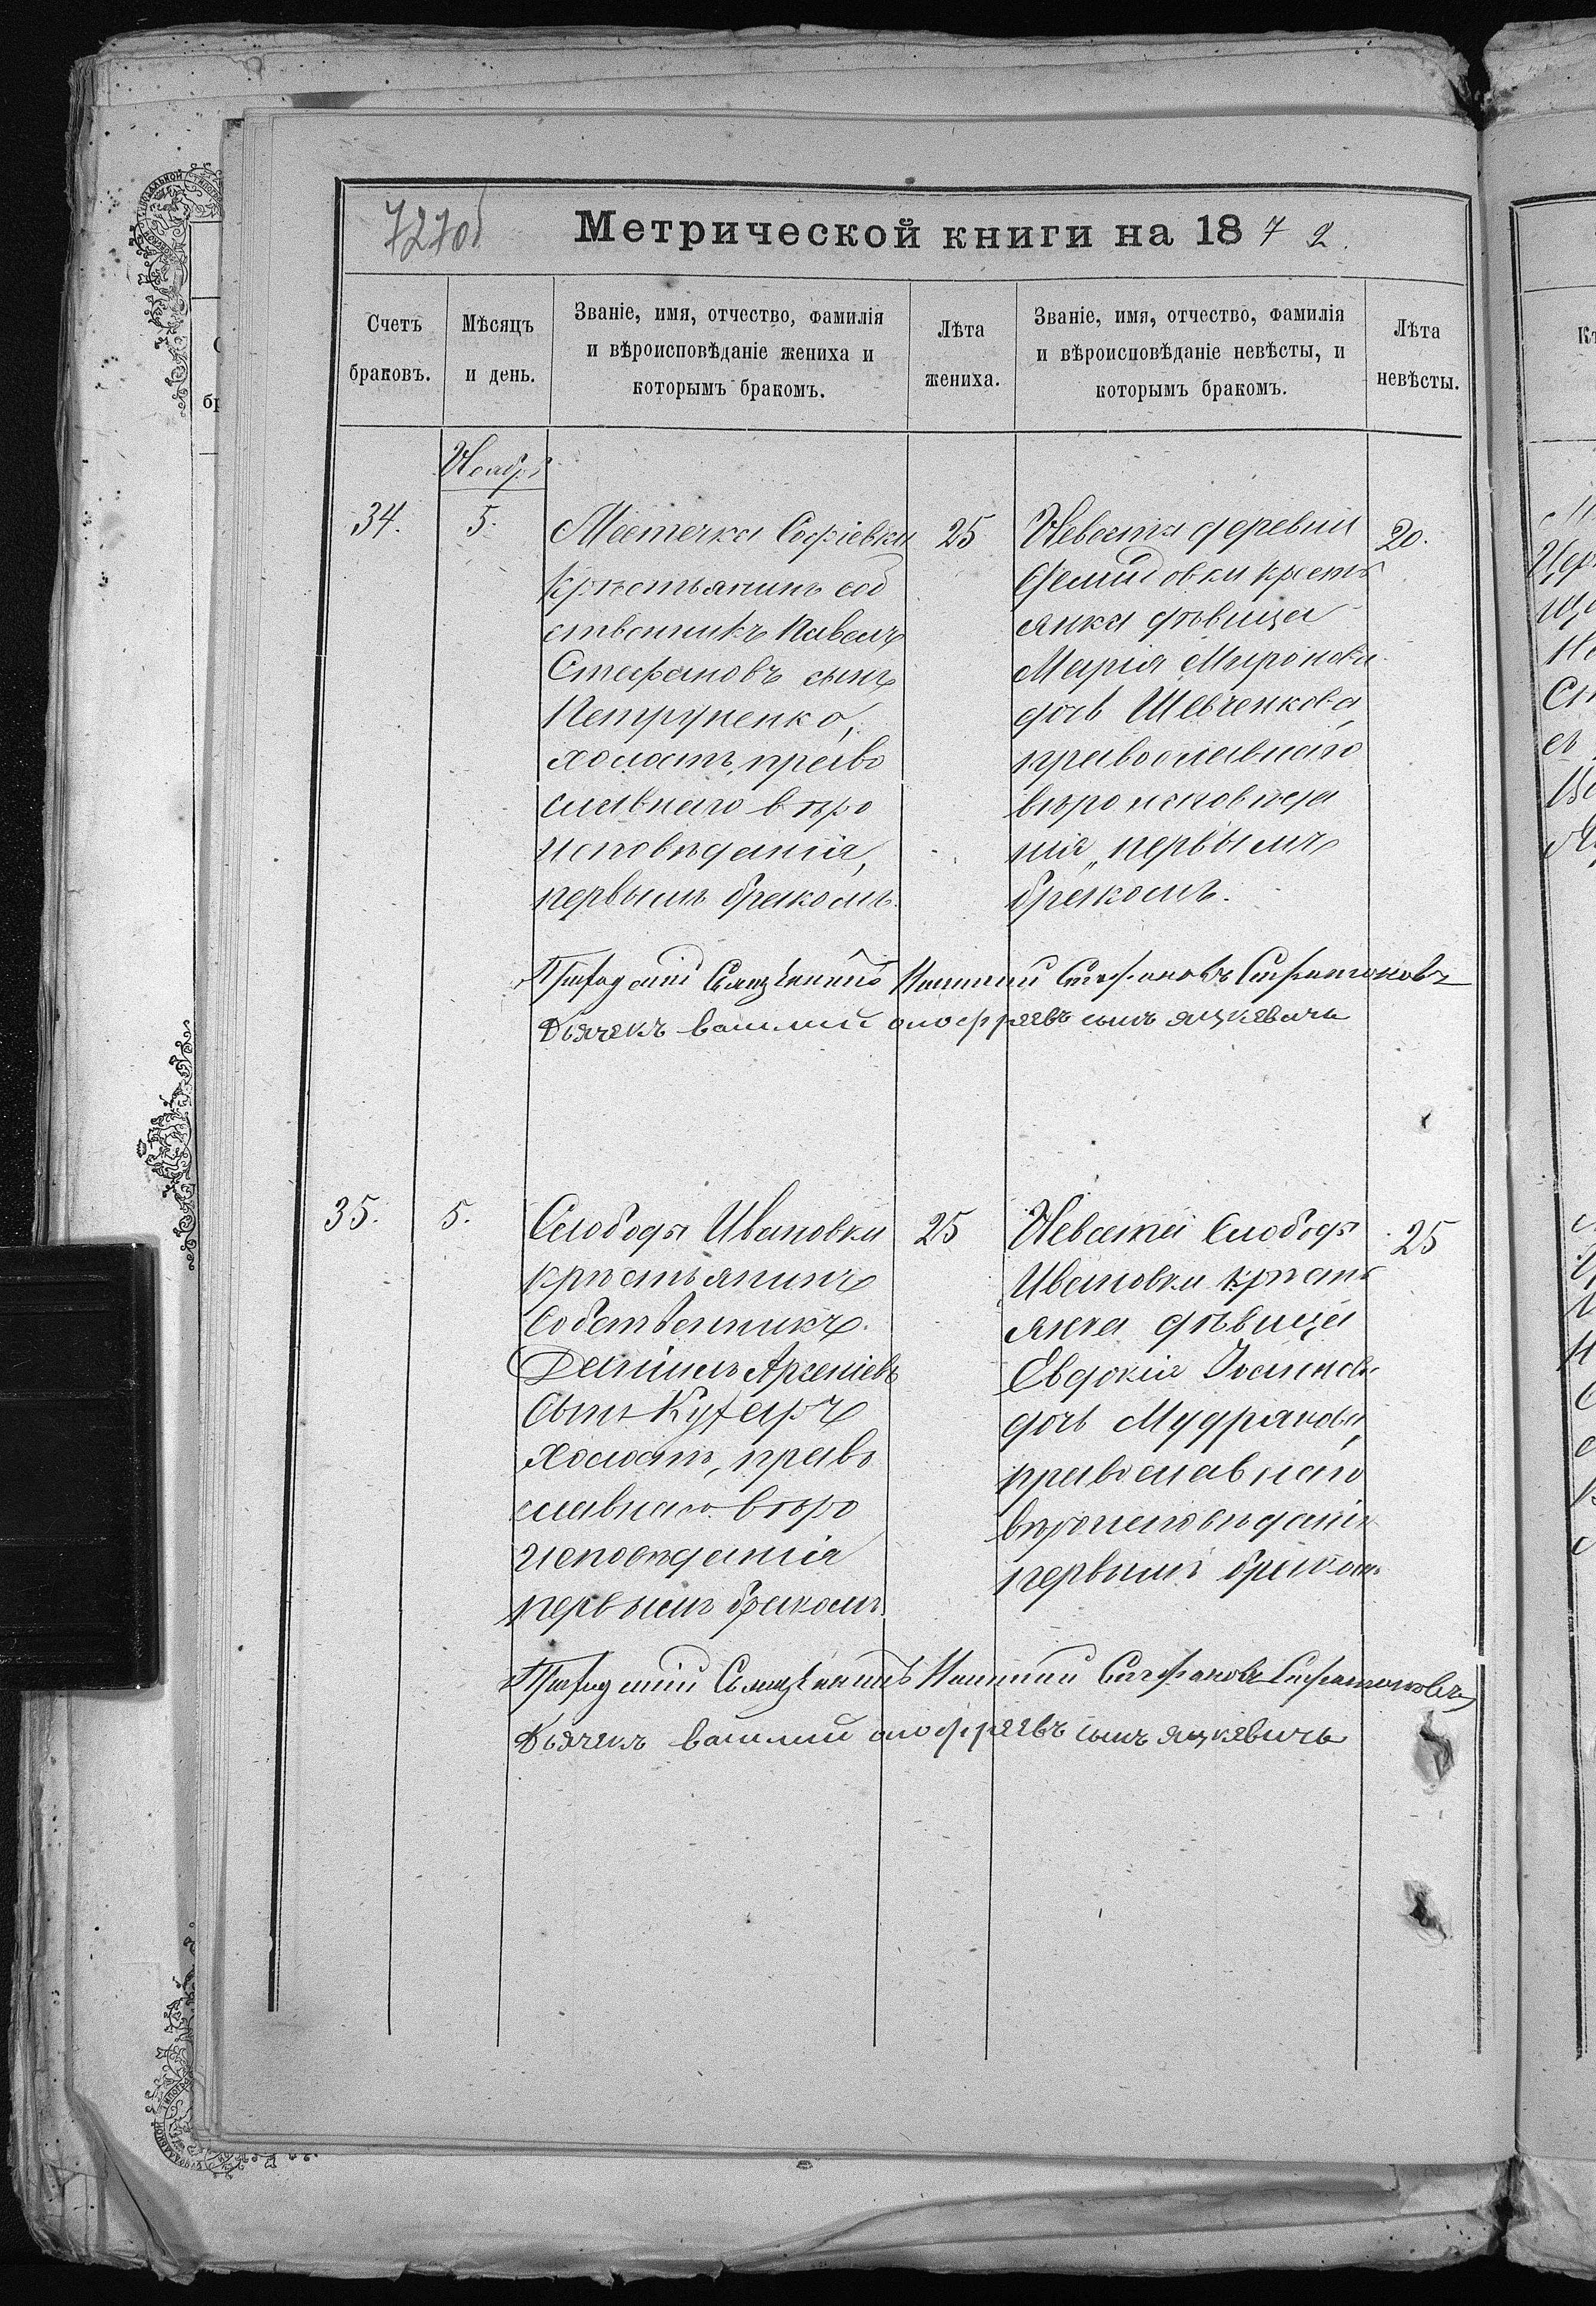 727об
Метрической книги на 1872.
Счетъ браковъ.
Мѣсяцъ и день.
Званіе, имя, отчество, фамилія
и вѣроисповѣданіе жениха и
которымъ бракомъ.
Лѣта жениха.
Званіе, имя, отчество, фамилія
и вѣроисповѣданіе невѣсты, и
которымъ бракомъ.
Лѣта невѣсты.
Ноябрь
34.
5.
Местечка Софіевки
крѣстьянинъ соб
ственникъ Павелъ
Стефановъ сынъ
Петруненко,
холостъ, право
славнаго вѣро
исповѣданія,
первымъ бракомъ.
25
Невеста деревни
Демидовки крѣсть
янка дѣвица
Марія Миронова
дочь Шевченкова,
православнаго
вѣроисповѣда
нія, первымъ
бракомъ.
20.
Приходскій Священникъ Стефановъ
Дьячекъ василій сынъ яцкевичь
35.
5.
Слободы Ивановки
крѣстьянинъ
Собственникъ
Даніилъ Арсеніевъ
Сынъ Кухаръ
Холостъ, право
славнаго вѣро
исповѣданія
первымъ бракомъ.
25
Невеста Слободы
Ивановки крѣсть
янка дѣвица
Евдокія
дочь Мудракова,
православнаго
вѣроисповѣданія
первымъ бракомъ
25
Приходскій Священникъ Стефановъ
Дьячекъ василій сынъ яцкевичь